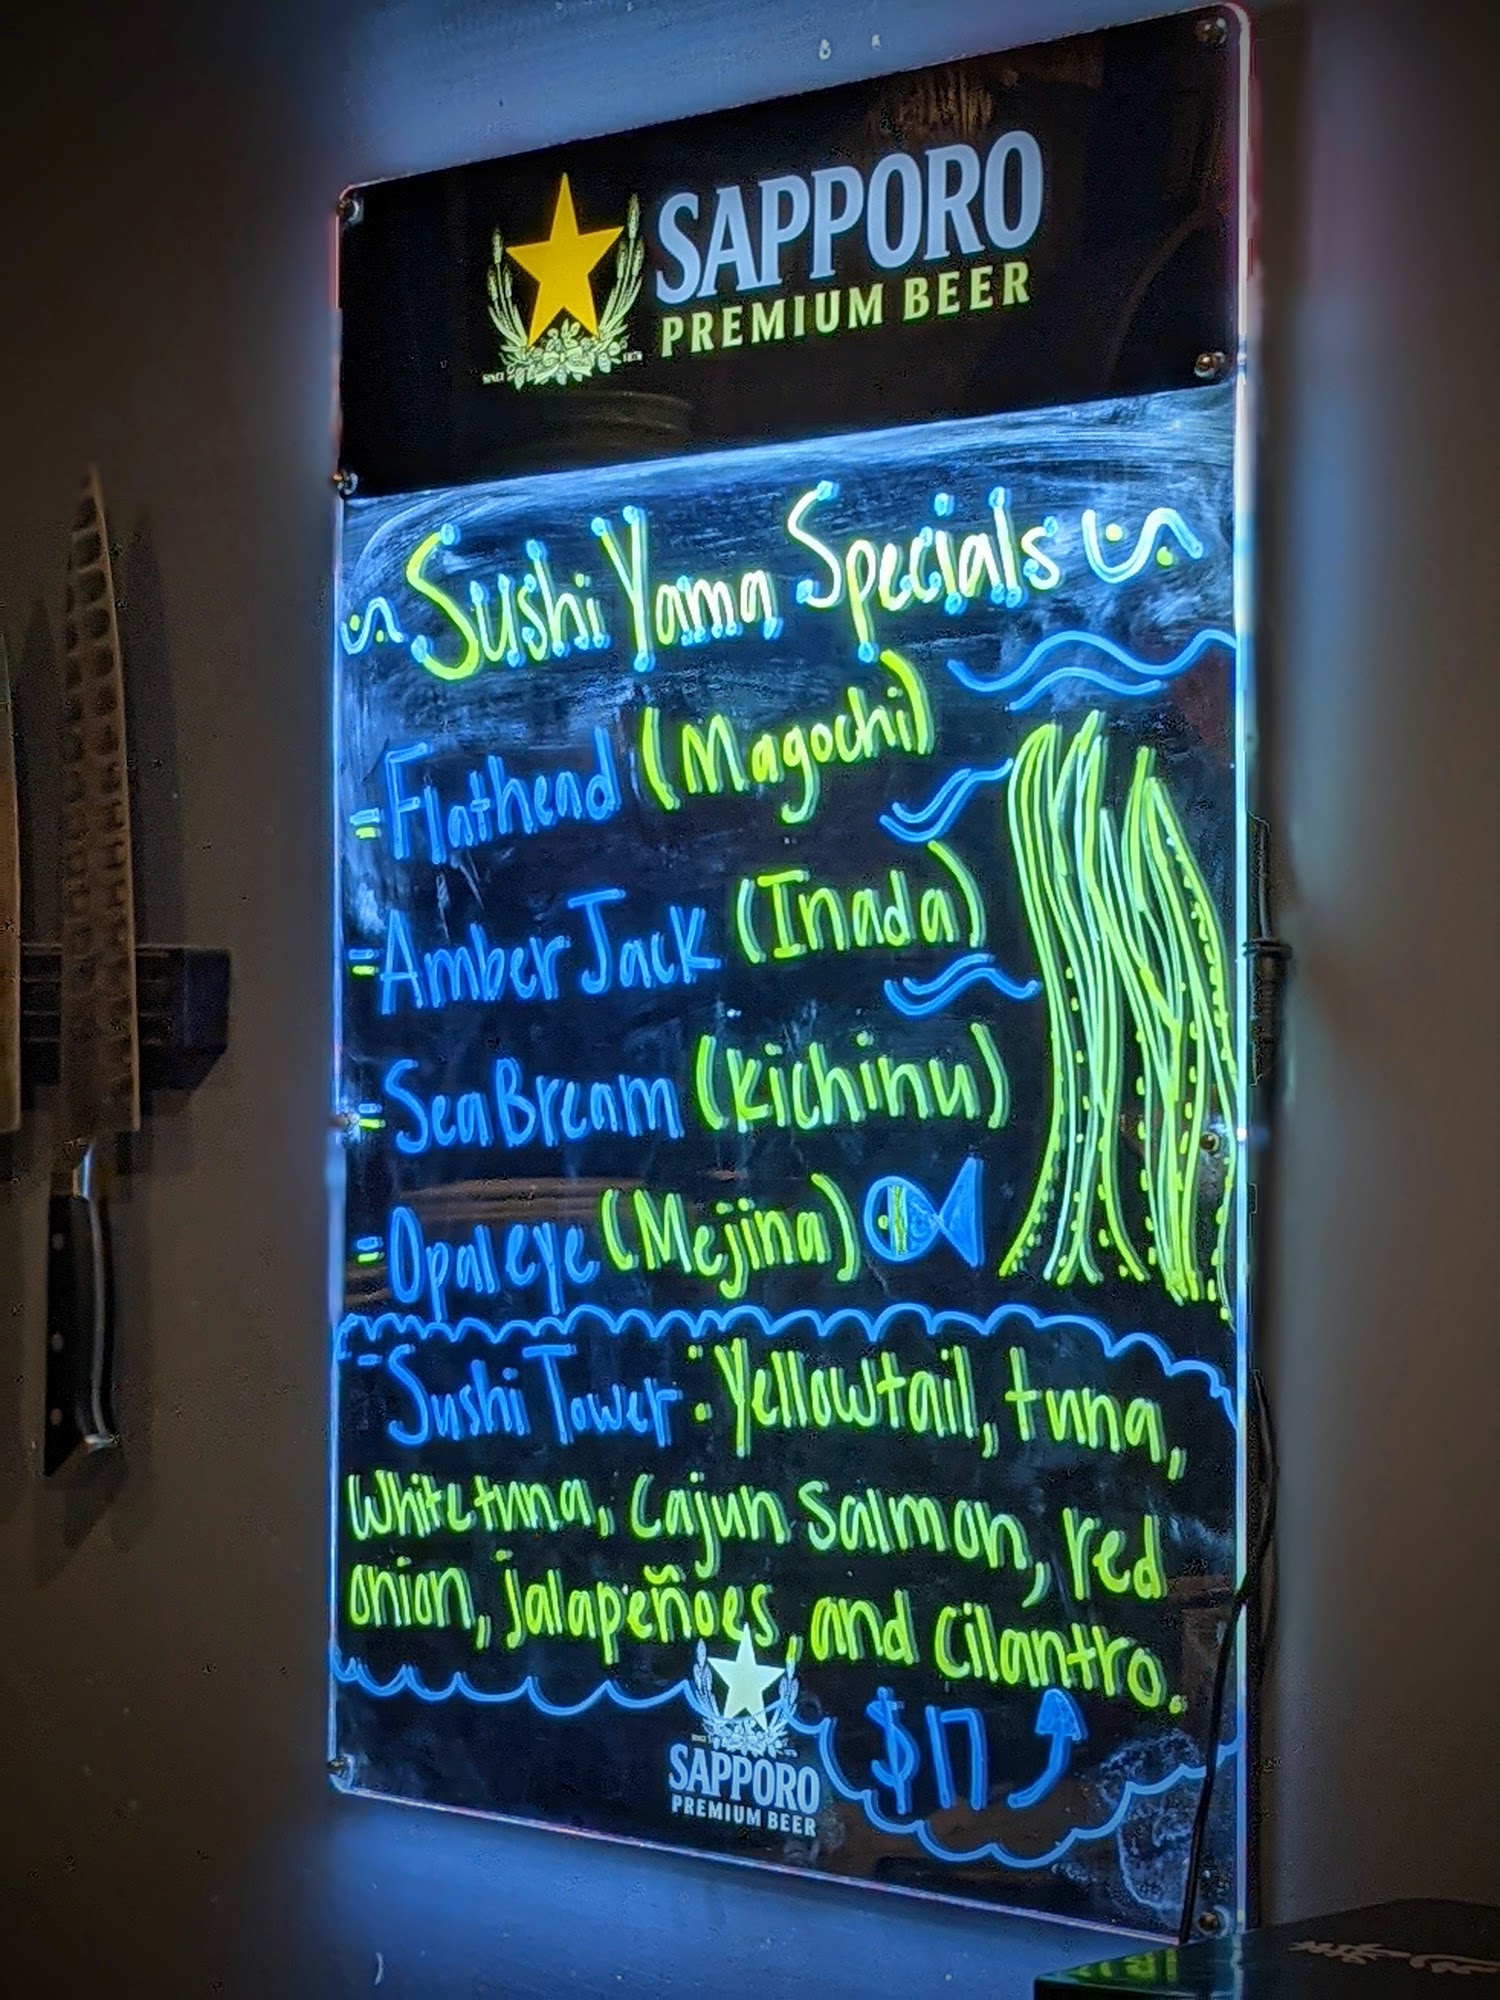 SAPPORO
PREMIUM BEER
Sushi Yama Specials
- Flathead (Magochi)
- Amber Jack (Inada)
- Sea Bream (Kichinu)
- Opaleye (Mejina)
- Sushi Tower: Yellowtail, tuna,
white tuna, Cajun Salmon, red
onion, jalapeñoes, and cilantro.
$17
SAPPORO
PREMIUM BEER